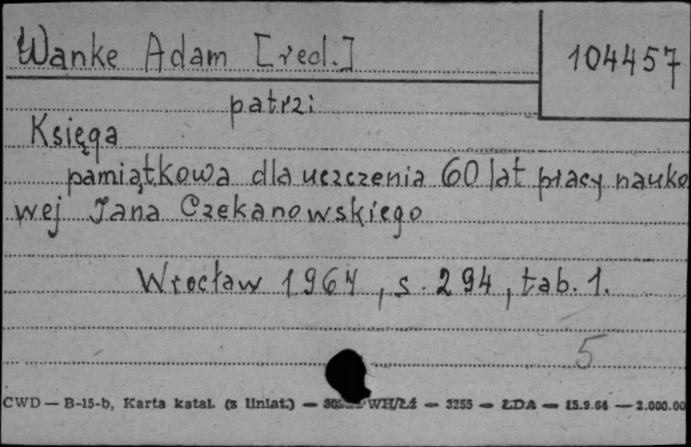 Wanke Adam [red.]
104457
patrz:
Księga
pamiątkowa dla uczczenia 60 lat pracy nauko
wej Jana Czekanowskiego
Wrocław 1964, s. 294, tab. 1.
5
CWD — B-15-b, Karta katal. (z liniat.) — WH/Łź — 3255 — ŁDA — 15.9.64 — 2.000.00